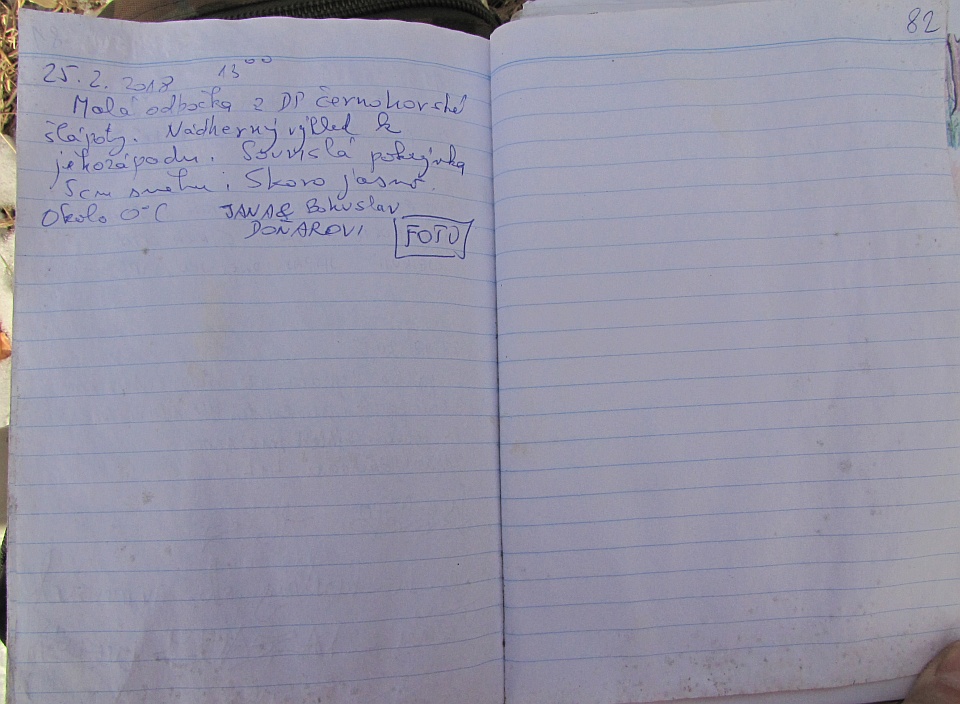 82
25. 2. 2018 13⁰⁰
Malá odbočka z DP černohorské
šlápoty. Nádherný výhled k
jihozápadu. Souvislá pokrývka
5cm sněhu, Skoro jasno.
Okolo 0°C JANA & Bohuslav
DOŇAROVI FOTO